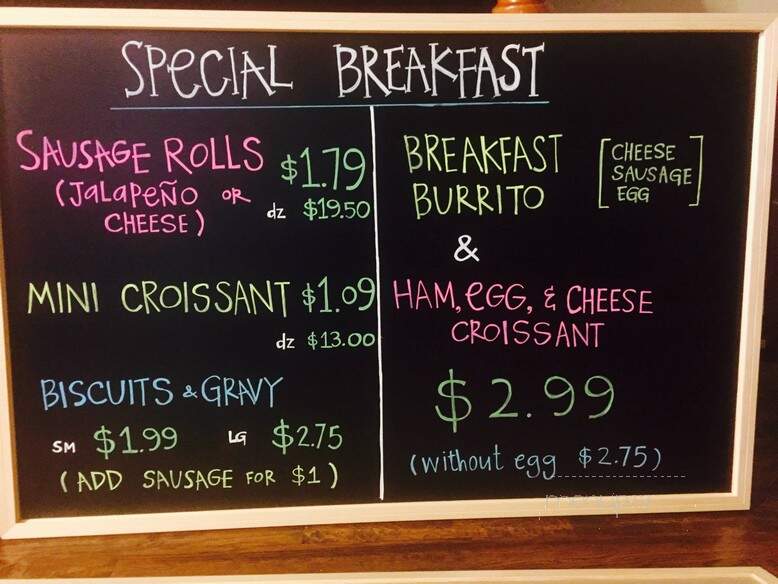 SPECIAL BREAKFAST
SAUSAGE ROLLS $1.79
(JALAPEÑO OR dz $19.50
CHEESE)
MINI CROISSANT $1.09
dz $13.00
BISCUITS & GRAVY
SM $1.99 LG $2.75
(ADD SAUSAGE FOR $1)
BREAKFAST
BURRITO
[CHEESE
SAUSAGE
EGG]
&
HAM, EGG, & CHEESE
CROISSANT
$2.99
(without egg $2.75)